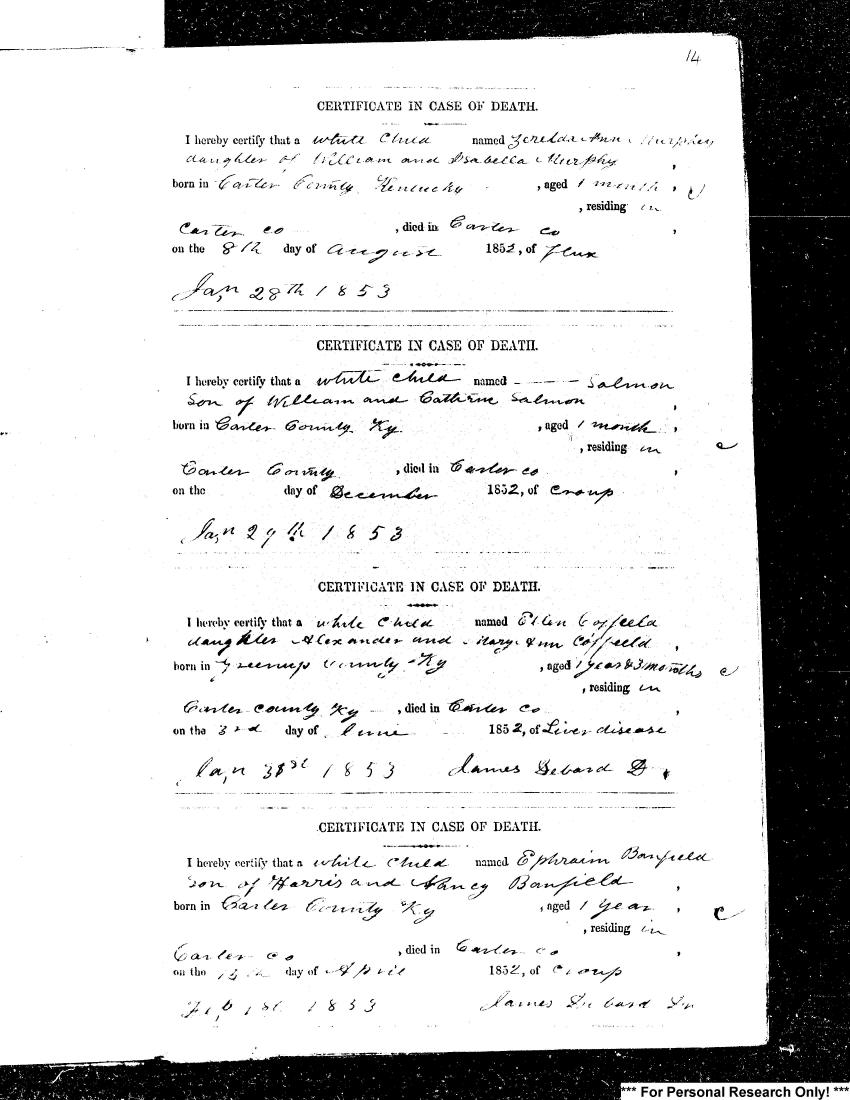 14
CERTIFICATE IN CASE OF DEATH.
I hereby certify that a white Child named Zerelda Ann Murphey
daughter of William and Isabella Murphy ,
born in Carter County Kentucky , aged 1 month , c
, residing in
Carter co , died in Carter co ,
on the 8th day of August 1852, of flux
Jan 28th 1853
CERTIFICATE IN CASE OF DEATH.
I hereby certify that a white child named - - - Salmon
Son of William and Cathrine Salmon ,
born in Carter County Ky , aged 1 month ,
, residing in c
Carter County , died in Carter co ,
on the day of December 1852, of croup
Jan 29th 1853
CERTIFICATE IN CASE OF DEATH.
I hereby certify that a white child named Ellen Coffeeld
daughter Alexander and Mary Ann Coffeeld ,
born in Greenup County Ky , aged 1 year & 3 months c
, residing in
Carter county Ky , died in Carter co ,
on the 3rd day of June 1852, of Liver disease
Jan 31st 1853 James Debard D
CERTIFICATE IN CASE OF DEATH.
I hereby certify that a white child named Ephraim Banfield
son of Harris and Nancy Banfield ,
born in Carter County Ky , aged 1 year , c
, residing in
Carter co , died in Carter co ,
on the day of April 1852, of croup
Feb 1st 1853 James Debard
*** For Personal Research Only! ***